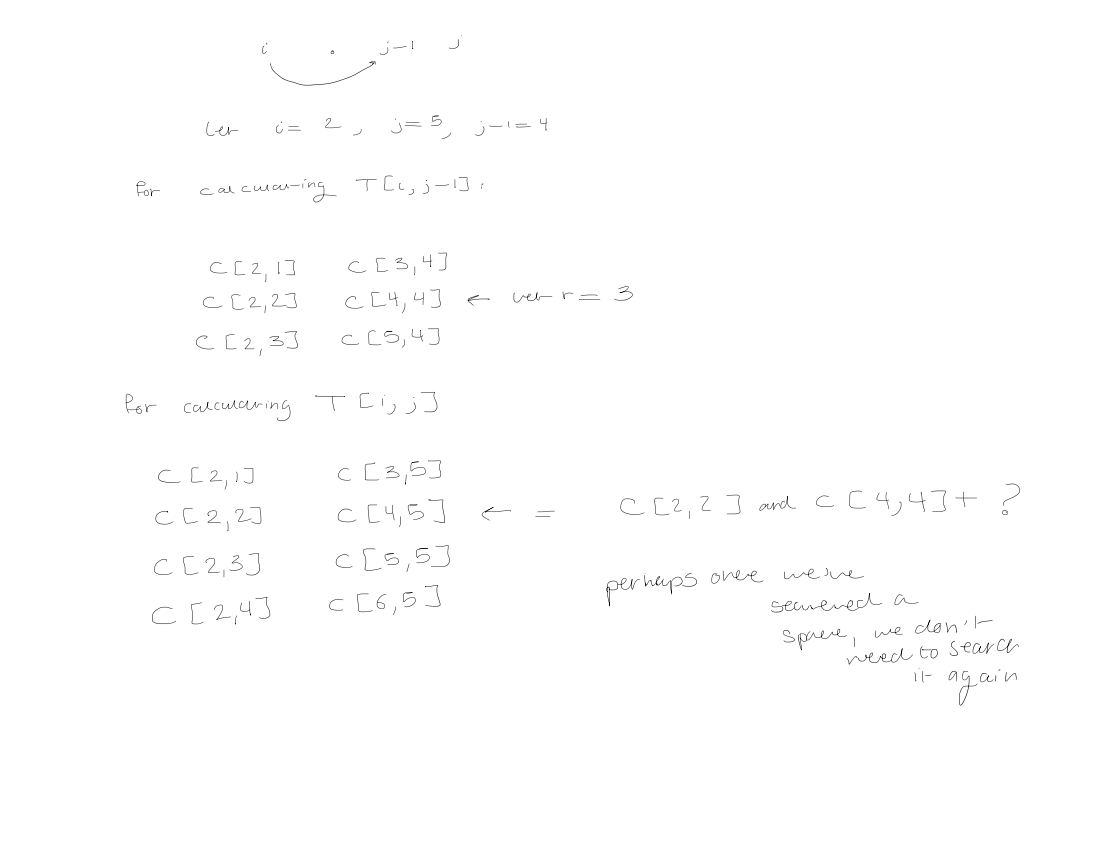 i . j-1 j
let i = 2, j = 5, j-1 = 4
for calculating T[i, j-1].
C[2,1] C[3,4]
C[2,2] C[4,4] ← let r = 3
C[2,3] C[5,4]
for calculating T[i, j]
C[2,1] C[3,5]
C[2,2] C[4,5] ← = C[2,2] and C[4,4] + ?
C[2,3] C[5,5]
C[2,4] C[6,5]
perhaps once we've
searched a
space, we don't
need to search
it again